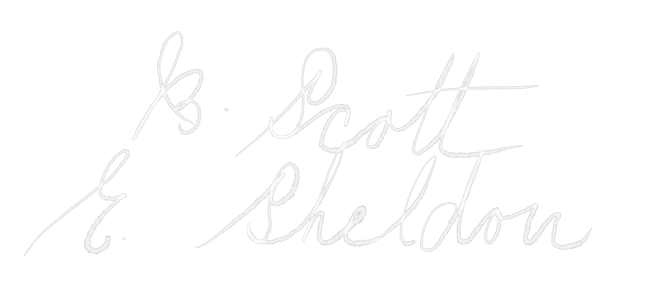 G. Scott
E. Sheldon